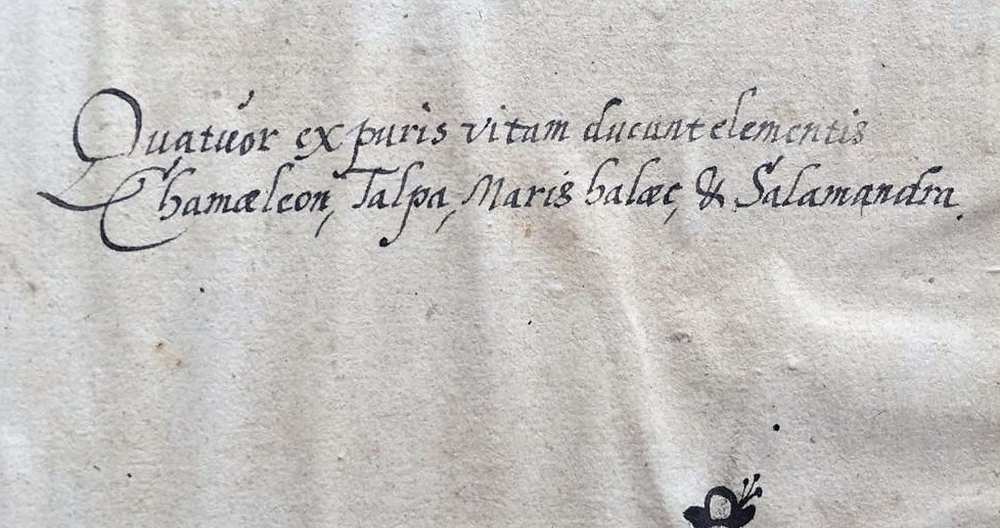 Quatuor ex puris vitam ducunt elementis
Chamæleon, Talpa, Maris halæc, & Salamandra.